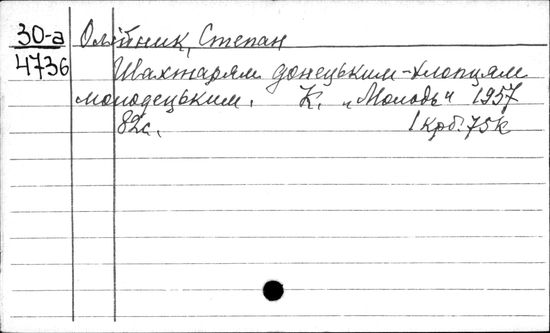 30-а Олійник, Степан
4736 Шахтарям донецьким-хлопцям
молодецьким. К. „Молодь" 1957
82с. 1 крб. 75к